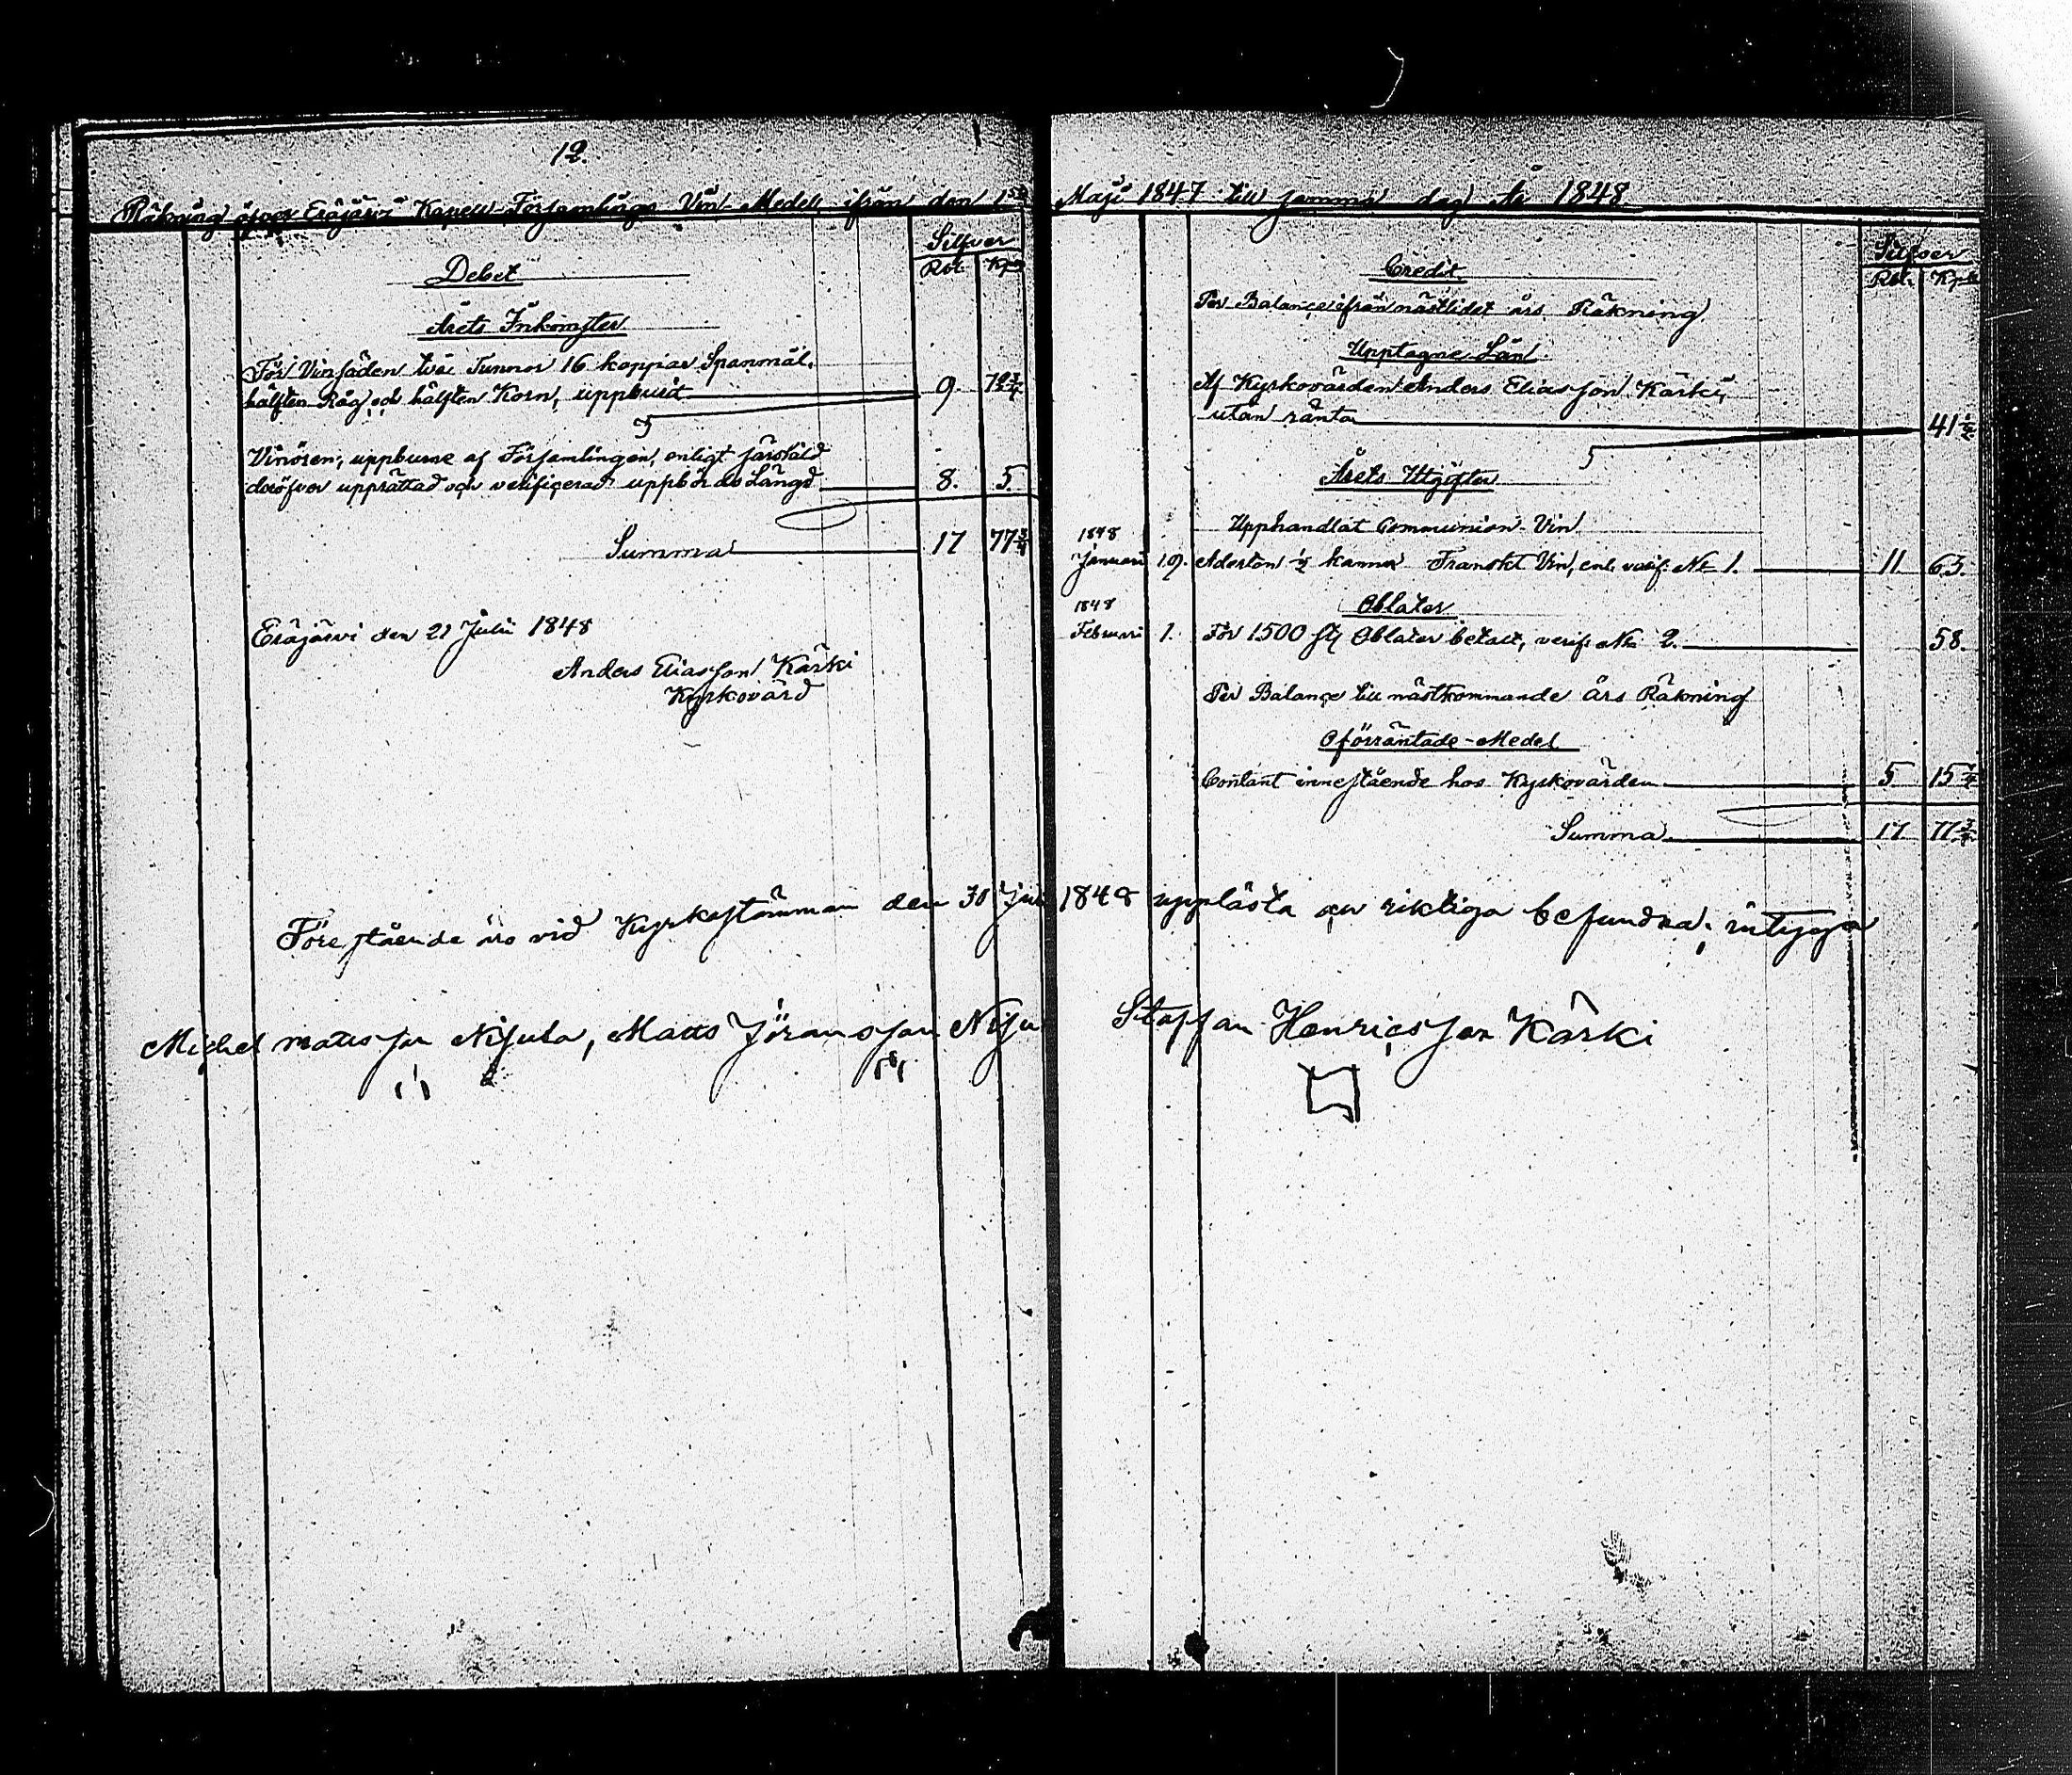 12.
Räkning öfver Eräjärvi Kapell-Församlings Vin-Medel, ifrån den 1sta Maji 1847 till samma dag År 1848.
Debet
Silfver
Rbl. Kpk
Årets Inkomster
För Vinsäden två Tunnor 16 kappar Spanmål,
hälften Råg och hälften Korn, uppburit 9. 72 3/4
Vinören, uppburne af Församlingen, enligt särskild
deröfver upprättad och verificerad uppbörds Längd 8. 5.
Summa 17 77 3/4
Eräjärvi den 21 Julii 1848
Anders Eliasson Kärki
Kyrkovärd
Credit
Silfver
Rbl. Kpk
Per Balance ifrån nästlidet års Räkning
Upptagne Lån
Af Kyrkovärden Anders Eliasson Kärki,
utan ränta 41 1/2
Årets Utgifter
Upphandlat Communion Vin
1848
Januari 19. Aderton 1/2 kannor Franskt Vin, enl. verif. No 1. 11 63.
Oblater
1848
Februari 1. För 1500 st Oblater betalt, verif. No 2. 58.
Per Balance till nästkommande års Räkning
Oförräntade-Medel
Contant innestående hos Kyrkovärden 5 15 1/4
Summa 17 77 3/4
Förestående äro vid Kyrkostämman den 30 Juli 1848 upplästa och riktiga befundna; intyga
Michel Mattsson Nisula, Matts Jöransson Nisu Staffan Henricsson Kärki